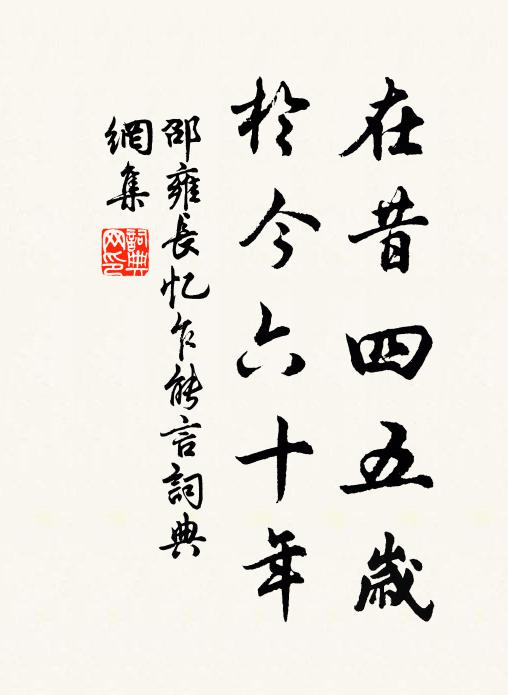 在昔四五歲
於今六十年
邵雍長忆乍能言詞典
網集
詞典网印